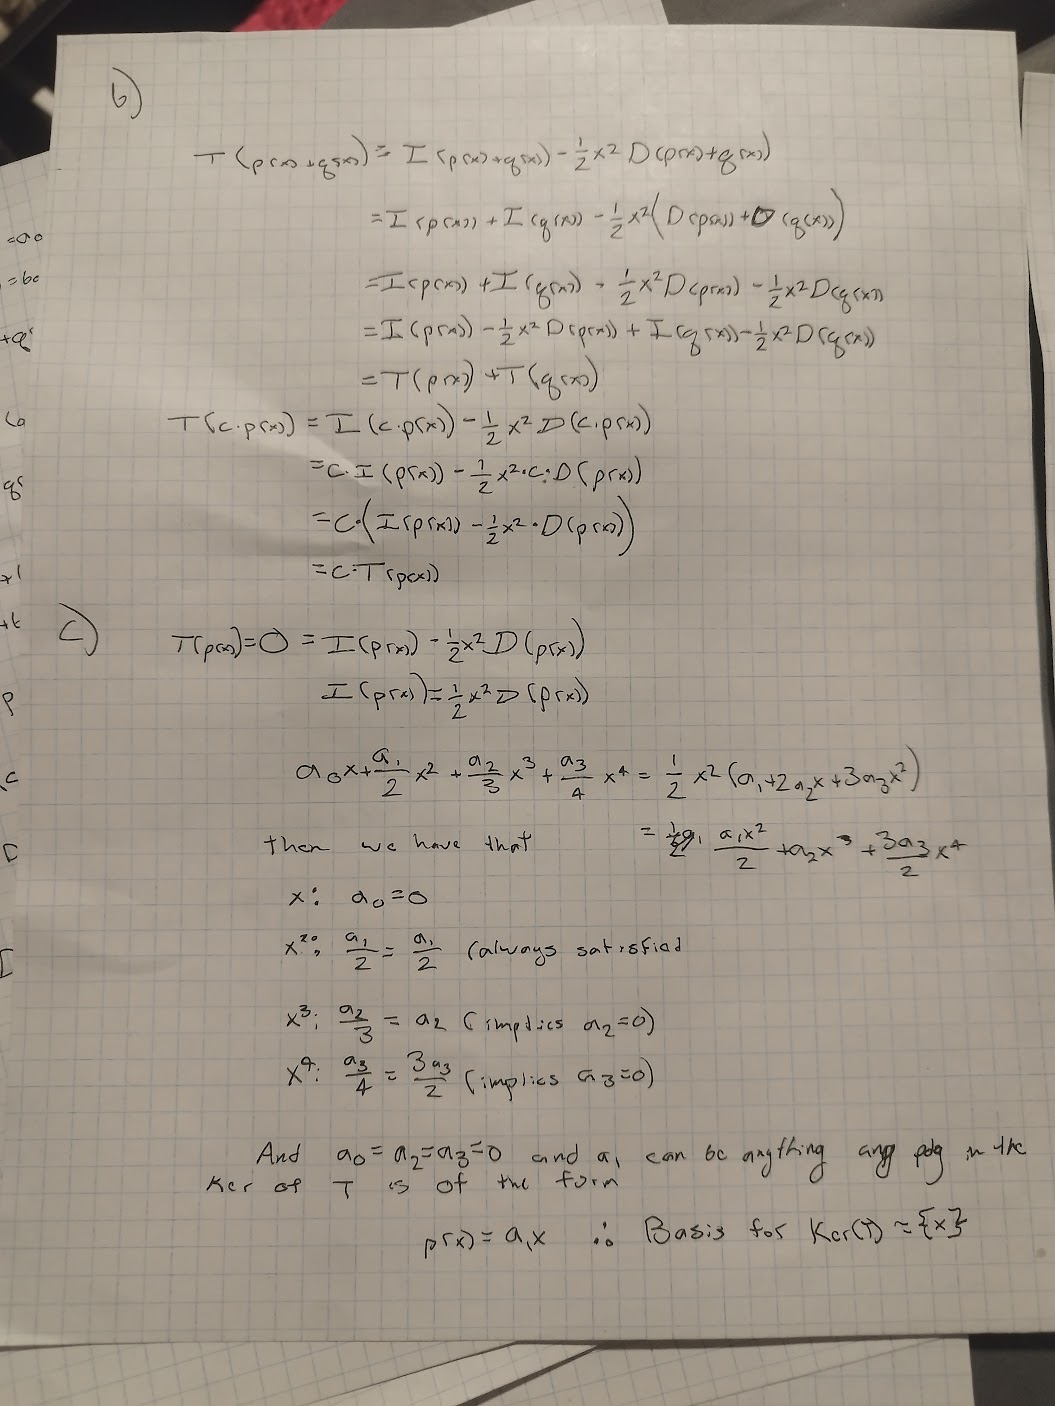 b)
T(p(x)+q(x)) = I(p(x)+q(x)) - 1/2 x² D(p(x)+q(x))
= I(p(x)) + I(q(x)) - 1/2 x² (D(p(x)) + D(q(x)))
= I(p(x)) + I(q(x)) - 1/2 x² D(p(x)) - 1/2 x² D(q(x))
= I(p(x)) - 1/2 x² D(p(x)) + I(q(x)) - 1/2 x² D(q(x))
= T(p(x)) + T(q(x))
T(c·p(x)) = I(c·p(x)) - 1/2 x² D(c·p(x))
= c·I(p(x)) - 1/2 x²·c·D(p(x))
= c·(I(p(x)) - 1/2 x²·D(p(x)))
= c·T(p(x))
c) T(p(x)) = 0 = I(p(x)) - 1/2 x² D(p(x))
I(p(x)) = 1/2 x² D(p(x))
a₀x + a₁/2 x² + a₂/3 x³ + a₃/4 x⁴ = 1/2 x² (a₁+2a₂x+3a₃x²)
then we have that = a₁x²/2 + a₂x³ + 3a₃/2 x⁴
x: a₀=0
x²: a₁/2 = a₁/2 (always satisfied
x³: a₂/3 = a₂ (implies a₂=0)
x⁴: a₃/4 = 3a₃/2 (implies a₃=0)
And a₀=a₂=a₃=0 and a₁ can be anything any poly in the
Ker of T is of the form
p(x) = a₁x ∴ Basis for Ker(T) = {x}
=a0
=b0